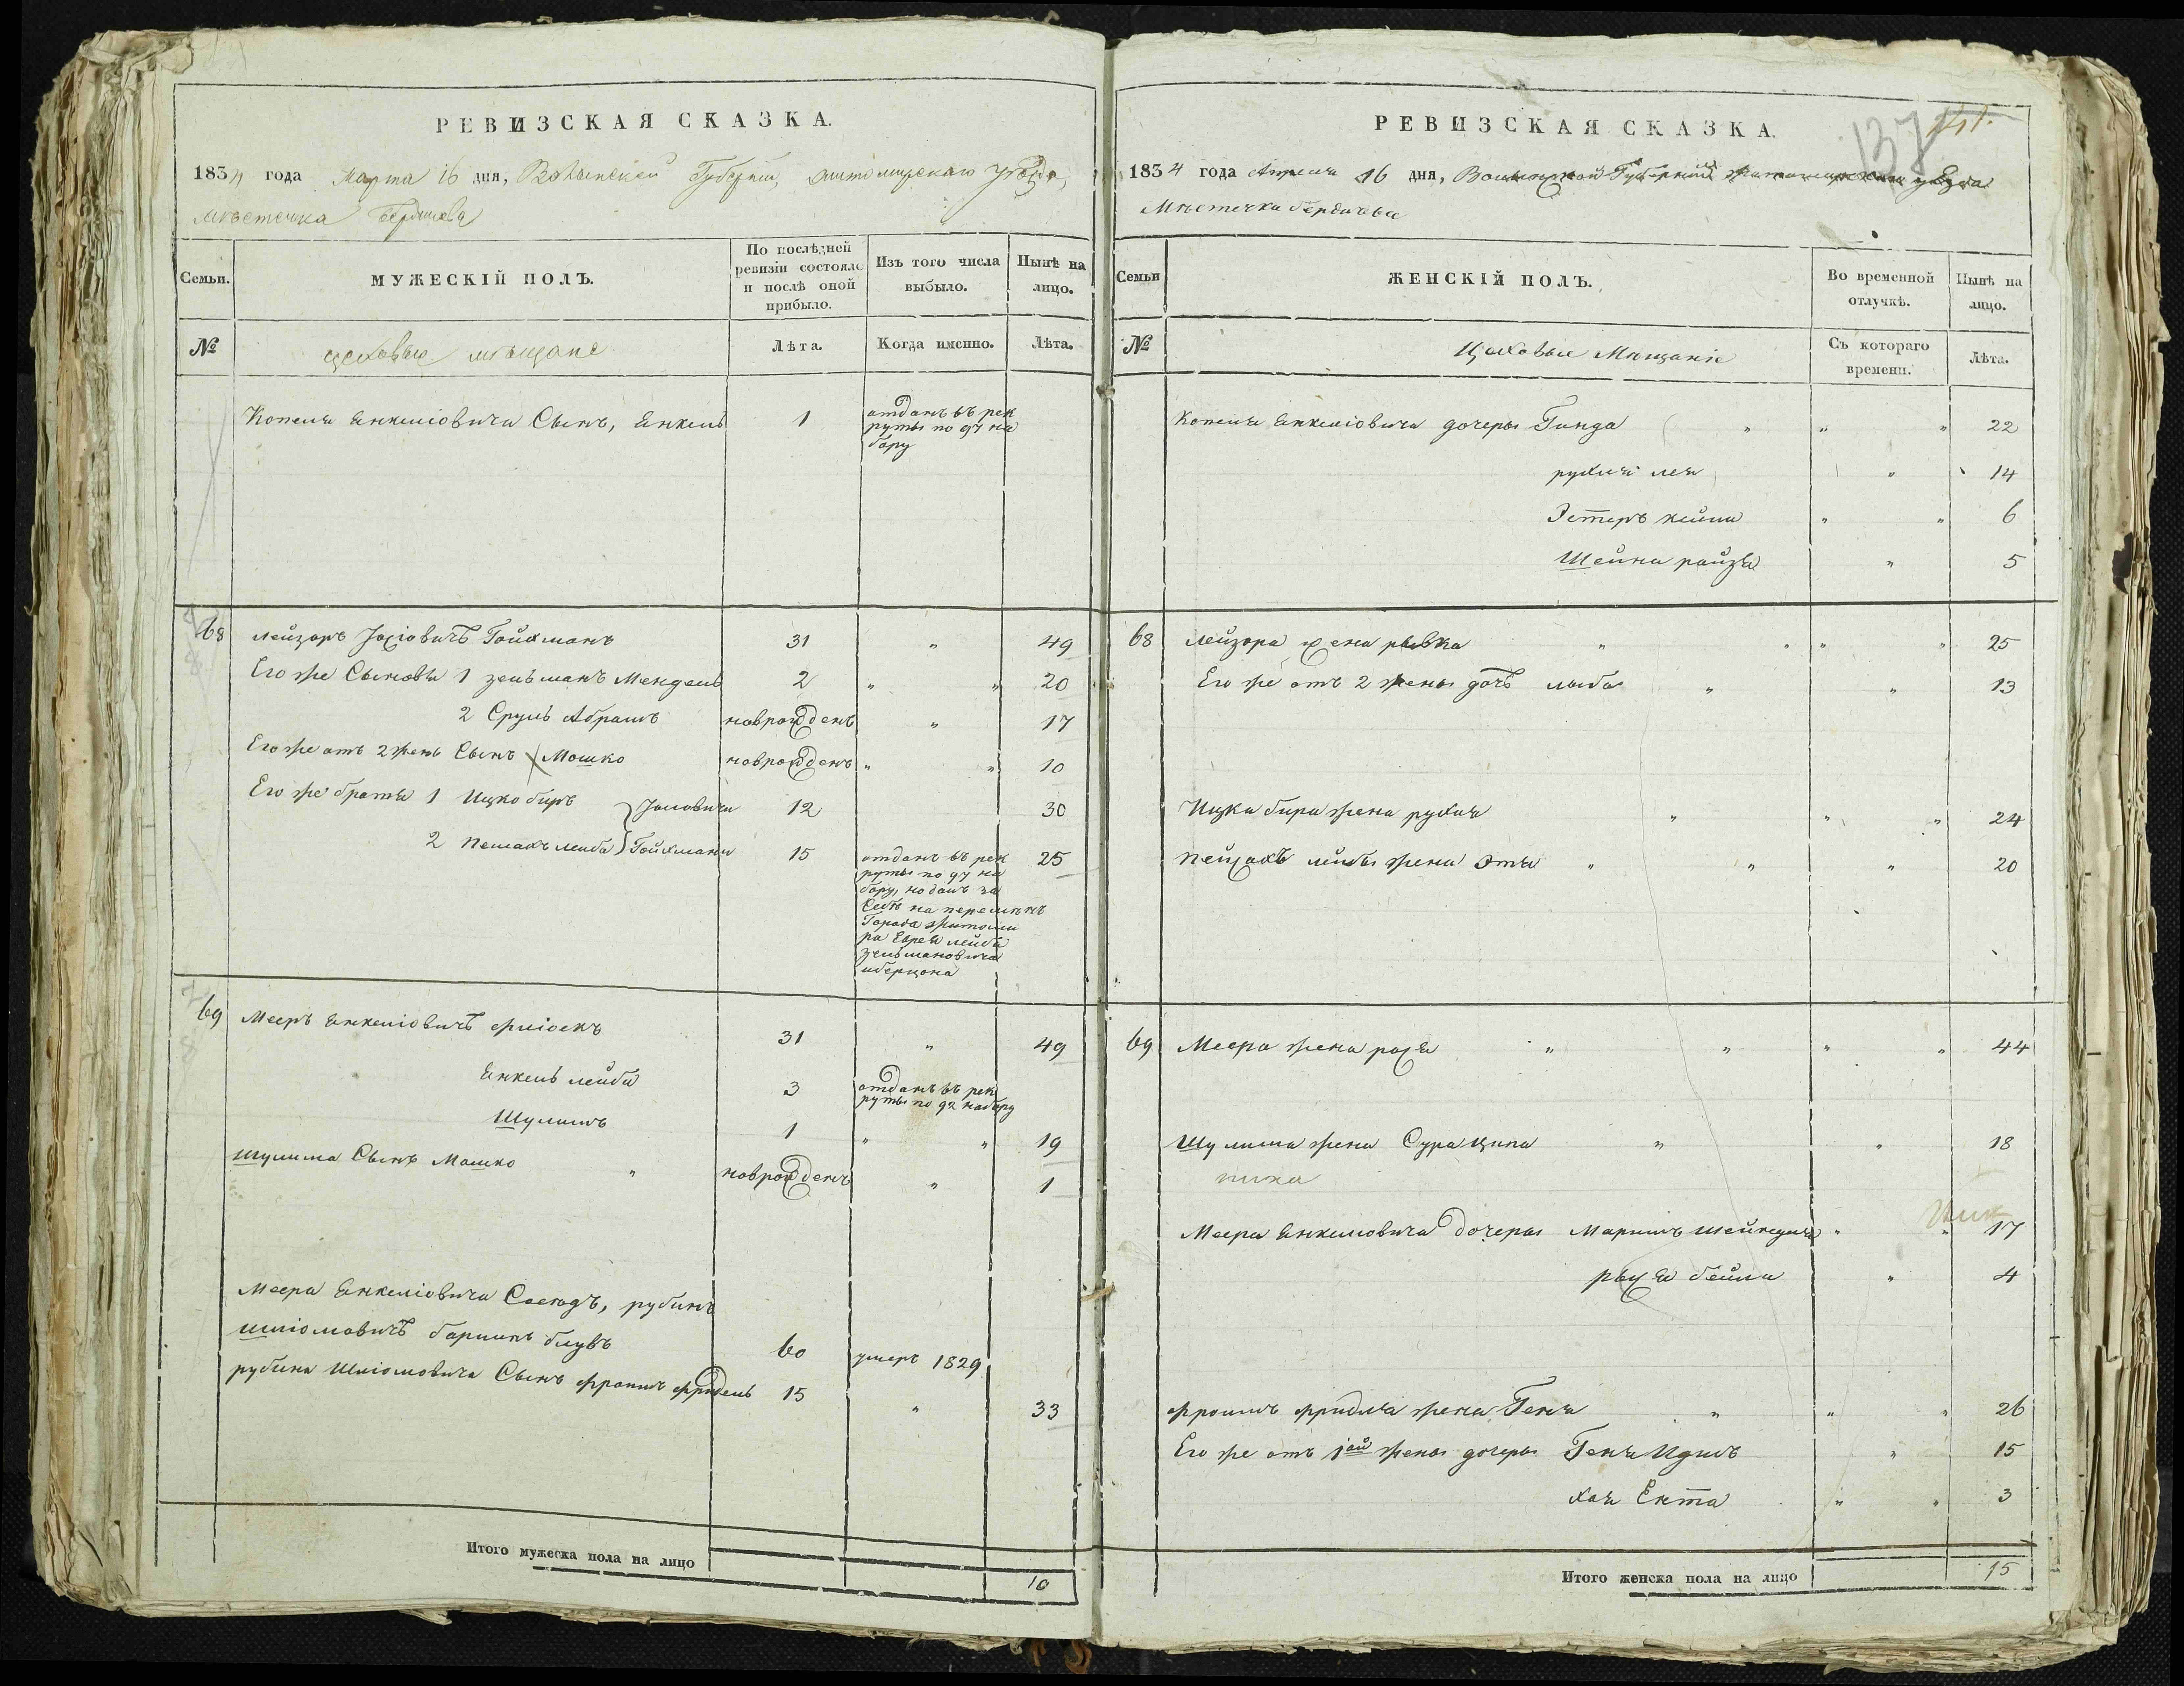 РЕВИЗСКАЯ СКАЗКА.
1834 года Марта 16 дня, Волынской Губернии, житомирскаго уѣзда,
мѣстечка Бердичева
Семьи.
МУЖЕСКІЙ ПОЛЪ.
По послѣдней ревизіи состояло и послѣ оной прибыло.
Изъ того числа выбыло.
Нынѣ на лицо.
№
цеховые мѣщане
Лѣта.
Когда именно.
Лѣта.
Копеля Енкеліовича Сынъ, Енкель 1
отданъ въ рек
руты по 97 на
бору
68 Лейзоръ Іосіовичъ Гойхманъ 31 " 49
Его же Сыновья 1 зельманъ Мендель 2 " " 20
2 Сруль Абрамъ новрожденъ " 17
Его же отъ 2 жены Сынъ Мошко новрожденъ " " 10
Его же братья 1 Ицко биръ 12 30
2 Пейсахъ лейба Гойхманы 15 25
отданъ въ рек
руты по 97 на
бору, но данъ за
Себя на перемѣнъ
Города житоми
ра Еврея лейба
зельмановича
69 Мееръ Енкеліовичъ 31 " 49
Енкель лейба 3
отданъ въ рек
руты по 92 набору
Шулимъ 1 " " 19
Шулима Сынъ Мошко " новрожденъ " 1
Меера Енкеліовича Сосѣдъ, рубинъ
Шліомовичъ 60 умеръ 1829
рубина Шліомовича Сынъ фроимъ фридель 15 " 33
Итого мужеска пола на лицо 10
РЕВИЗСКАЯ СКАЗКА.
137
141.
1834 года Апреля 16 дня, Волынской Губерніи житомирскаго уѣзда
Мѣстечка бердичева
Семьи
ЖЕНСКІЙ ПОЛЪ.
Во временной отлучкѣ.
Нынѣ на лицо.
№
Цеховые Мещаніе
Съ котораго времени.
Лѣта.
Копеля Енкеліовича дочеры Гинда " " " 22
рухля лея " 14
Эстеръ хейни " " 6
Шейна райзя " 5
68 Лейзора жена рывка " " " " 25
Его же отъ 2 жены дочь " " 13
Ицка бира жена рухля " " " 24
Пейсахъ лейбы жена Этя " " " 20
69 Меера жена розя " " " " 44
Шулима жена Сура ципа " " 18
Меера Енкеліовича дочеры Маріимъ шейндля " " 17
бейли " 4
фроимъ фридля жена Геня " " " 26
Его же отъ 1ой жены дочеры Геня Идись " 15
хая Ента " " 3
Итого женска пола на лицо 15